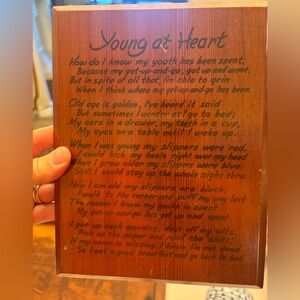 Young at Heart
How do I know my youth has been spent,
Because my get-up-and-go, got up and went.
But in spite of all that, I'm able to grin
When I think where my get-up-and-go has been.
Old age is golden, I've heard it said
But sometimes I wonder as I go to bed;
My ears in a drawer, my teeth in a cup,
My eyes on a table until I wake up.
When I was young my slippers were red,
I could kick my heels right over my head
When I grew older my slippers were blue
Still I could stay up the whole night thru.
Now I am old my slippers are black.
I walk to the corner and puff my way back
The reason I know my youth is spent
My get-up-and-go has got up and went.
I get up each morning, dust off my wits,
Pick up the paper and read the "obits"
If my name is missing, I know I'm not dead
So I eat a good breakfast and go back to bed.